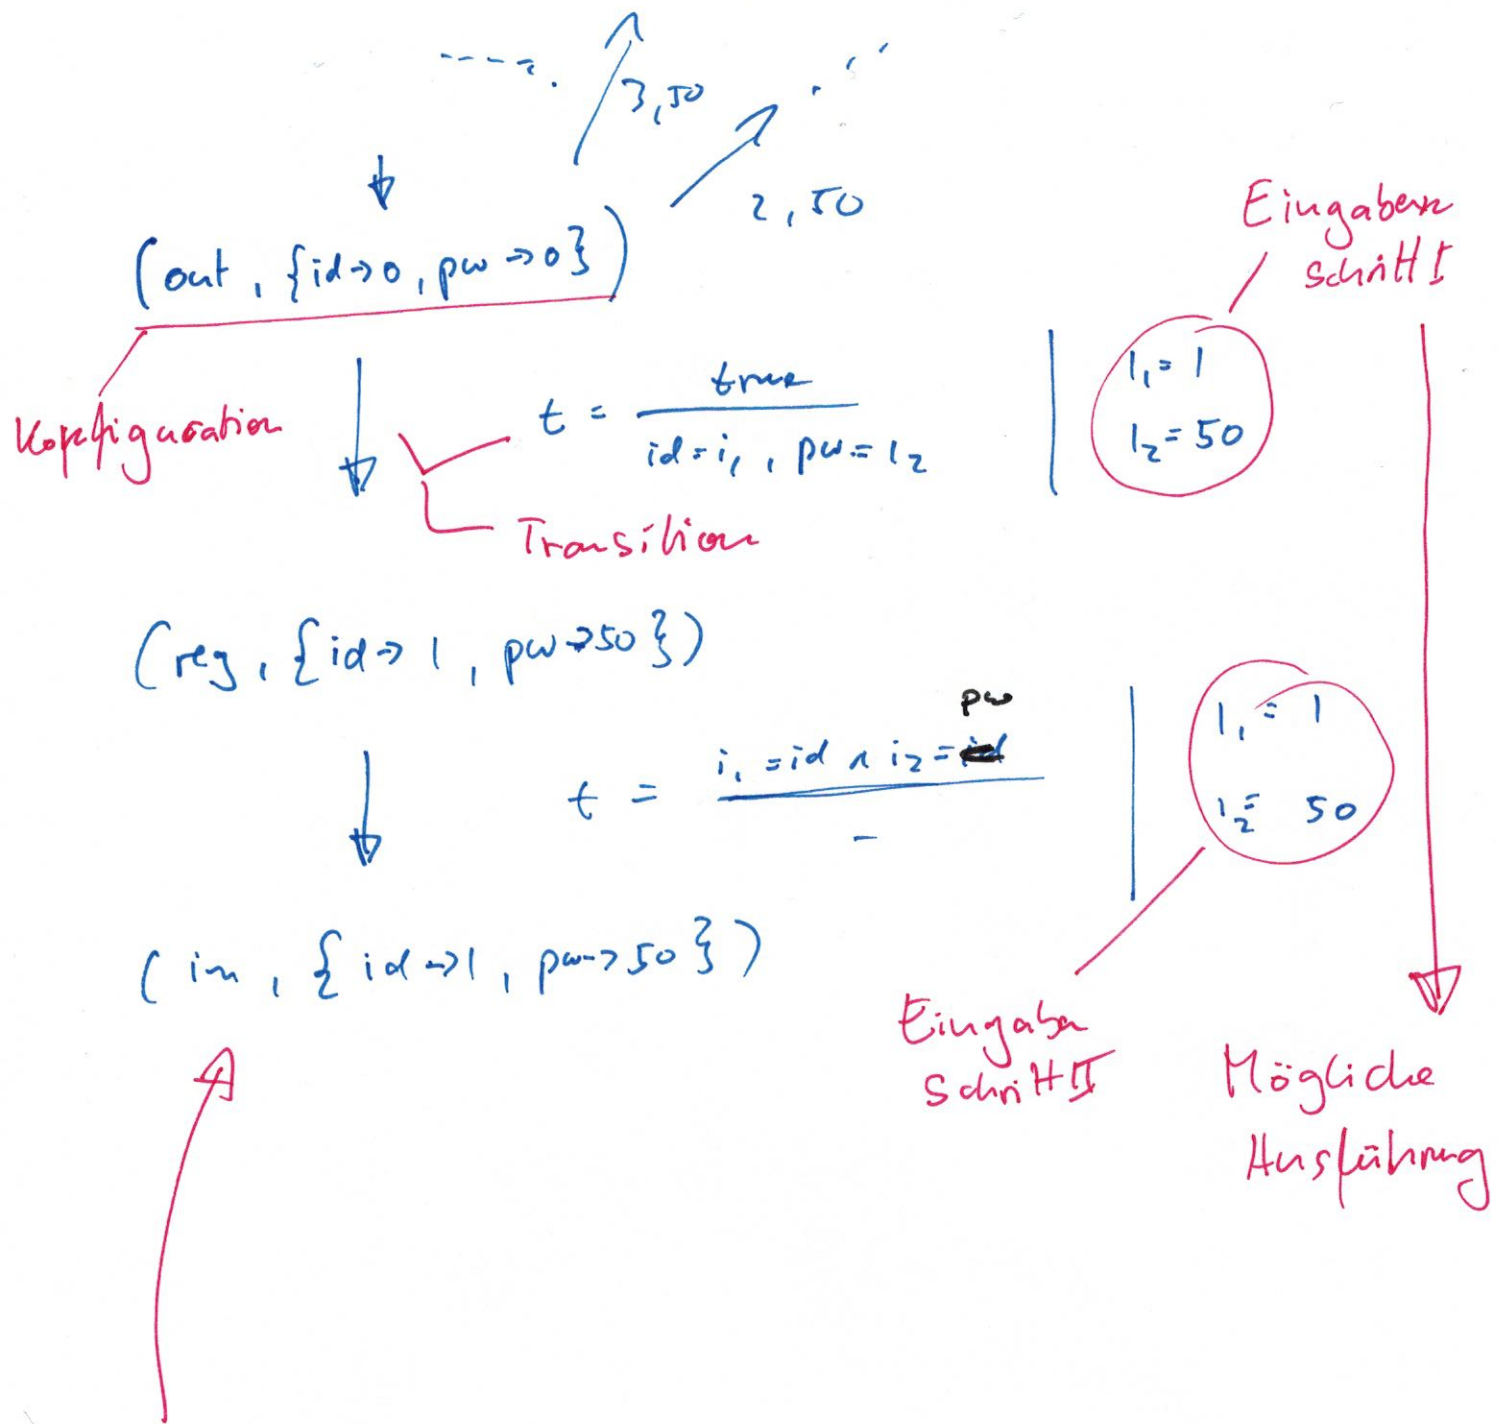 3,50
2,50
(out, {id→0, pw→0})
Eingaben
Schritt I
Konfiguration
t = true / id=i₁, pw=i₂
i₁ = 1
i₂ = 50
Transition
(reg, {id→1, pw→50})
pw
t = i₁ = id ∧ i₂ = / -
i₁ = 1
i₂ = 50
(in, {id→1, pw→50})
Eingaben
Schritt II
Mögliche
Ausführung